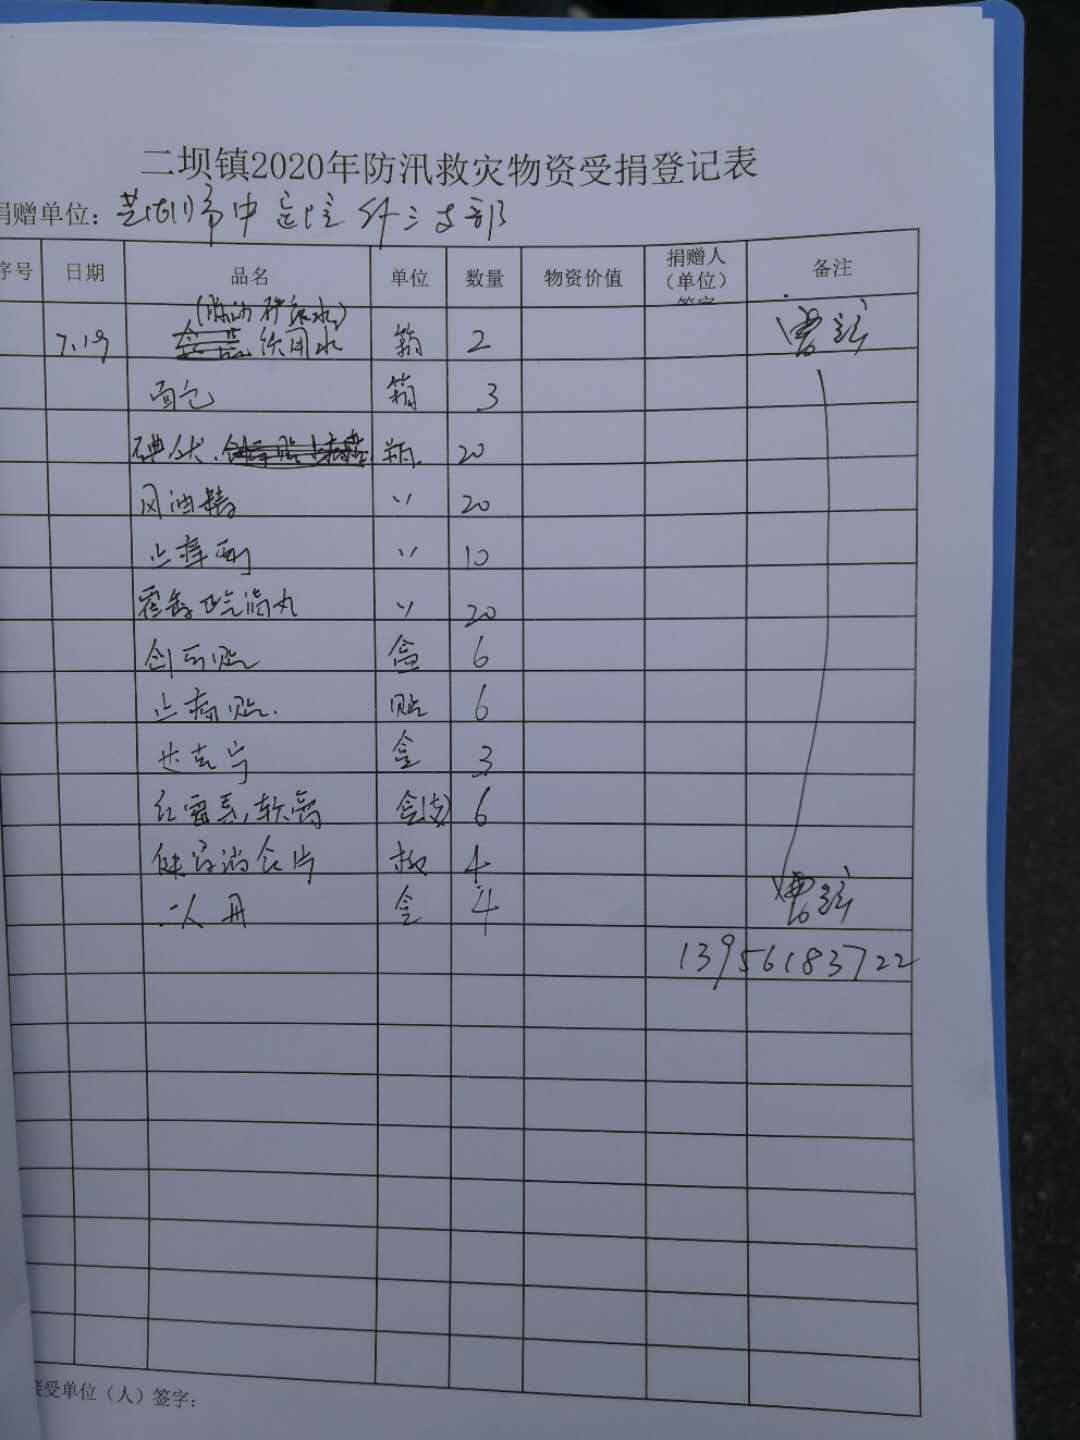 二坝镇2020年防汛救灾物资受捐登记表
捐赠单位：芜湖市中医院外三支部
序号 日期 品名 单位 数量 物资价值 捐赠人（单位）签字 备注
7.19 饮用水 箱 2
面包 箱 3
碘伏、 瓶 20
风油精 〃 20
止痒 〃 10
藿香正气滴丸 〃 20
创可贴 盒 6
止痛贴. 贴 6
达克宁 盒 3
红霉素软膏 盒(支) 6
健胃消食片 板 4
人丹 盒 4
13956183722
接受单位（人）签字：